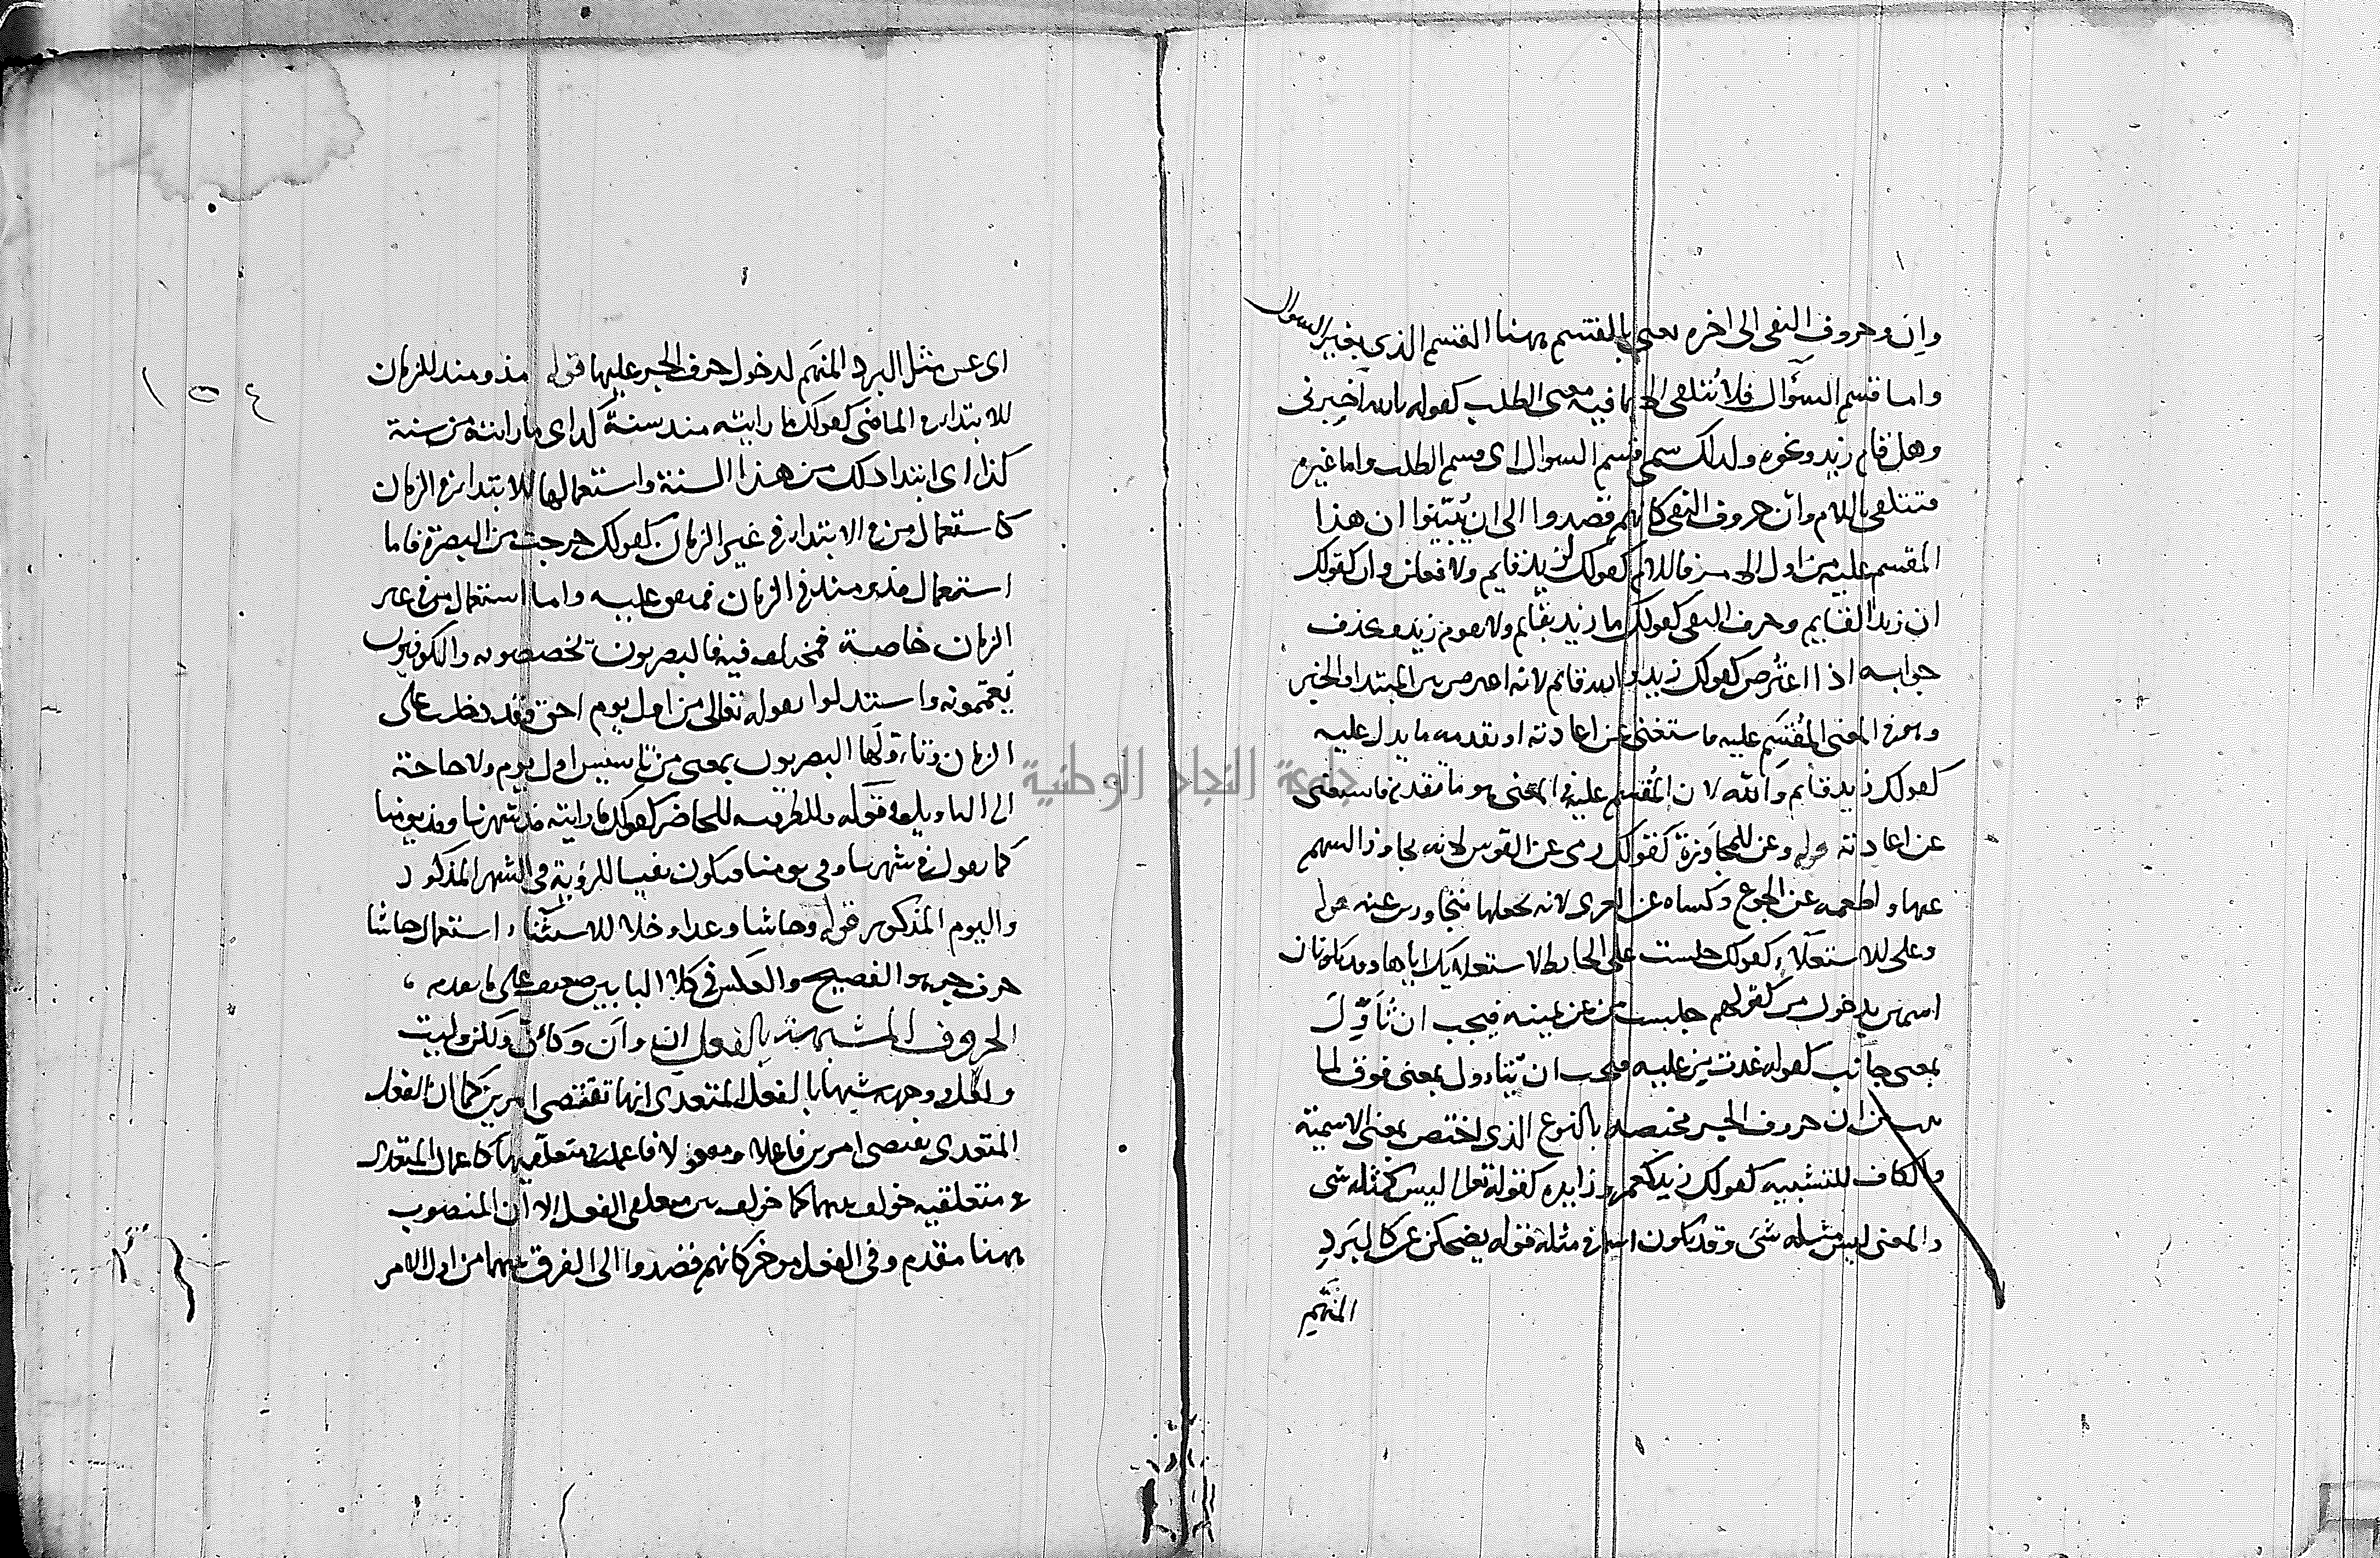 وان وحروف النفى الى اخره يعنى بالقسم ههنا القسم الذى بغير السوال
واما قسم السؤال فلا يُتلقى الا بما فيه معنى الطلب كقولك بالله اخبرنى
وهل قام زيد ونحوه ولذلك سمى قسم السوال اى قسم الطلب واما غيره
فتتلقى باللام وان حروف النفى كانهم قصدوا الى ان يُبيّنوا ان هذا
المقسم عليه من اول الامر فاللام كقولك لزيد قايم ولافعلن وان كقولك
ان زيدا لقايم وحرف النفى كقولك ما زيد بقايم ولا يقوم زيد ويحذف
جوابه اذا اعتُرض كقولك زيد والله قايم لانه اعترض بين المبتدا والخبر
وهو فى المعنى المُقسَم عليه فاستغنى عن اعادته او تقدمه ما يدل عليه
كقولك زيد قايم والله لان المُقسم عليه فى المعنى هو ما تقدم فاستغنى
عن اعادته قوله وعن للمجاوزة كقولك رمى عن القوس لانه يجاوز السهم
عنها واطعمه عن الجوع وكساه عن العرى لانه يجعلها متجاوزين عنه قوله
وعلى للاستعلاء كقولك جلست على الحايط لاستعلائك اياها وقد يكونان
اسمين بدخول من كقولهم جلست من عن يمينه فيجب ان تُأَوَّلَ
بمعنى جانب كقوله غدت من عليه فيجب ان يتناول بمعنى فوق لما
ان حروف الجر مختصة بالنوع الذى اختص بمعنى الاسمية
والكاف للتشبيه كقولك زيد كعمرو وزايده كقوله تعالى ليس كمثله شى
والمعنى ليس مثله شى وقد يكون اسما فى مثله قوله يضحكن عن كالبَردِ
المنهَمِّ
جامعة النجاح الوطنية
١٥٤
اى عن مثل البرد المنهَم لدخول حرف الجر عليها قوله مذ ومنذ للزمان
للابتداء فى الماضى كقولك ما رايته منذ سنة كذا اى ما رايته من سنة
كذا اى ابتدا ذلك من هذا السنة واستعمالها للابتدا فى الزمان
كاستعمال من فى الابتداء فى غير الزمان كقولك خرجت من البصرة فاما
استعمال مذ ومنذ فى الزمان فمتفق عليه واما استعمال من فى غير
الزمان خاصة فمختلف فيه فالبصريون تخصصونه والكوفيون
يعممونه واستدلوا بقوله تعالى من اول يوم احق وقد دخلت على
الزمان وتاءولها البصريون بمعنى من تاسيس اول يوم ولا حاجة
الى التاويل فى قوله وللظرفيه للحاضر كقولك ما رايته مذ شهرنا ومذ يومنا
كما يقول فى شهرنا وفى يومنا فيكون نفيا للرؤية فى الشهر المذكور
واليوم المذكور قوله وحاشا وعدا وخلا للاستثناء استعمال حاشا
حرف جر هو الفصيح والعكس فى كلا البابين ضعيف على ما تقدم
الحروف المشبهة بالفعل ان وان وكان ولكن وليت
ولعل ووجه شبهها بالفعل المتعدى انها تقتضى امرين كما ان الفعل
المتعدى يقتضى امرين فاعلا ومفعولا فاعملت فى متعلقيها كاعمال المتعدى
فى متعلقيه خولف بينهما كما خولف بين متعلقى الفعل الا ان المنصوب
ههنا مقدم وفى الفعل موخر كانهم قصدوا الى الفرق بينهما من اول الامر